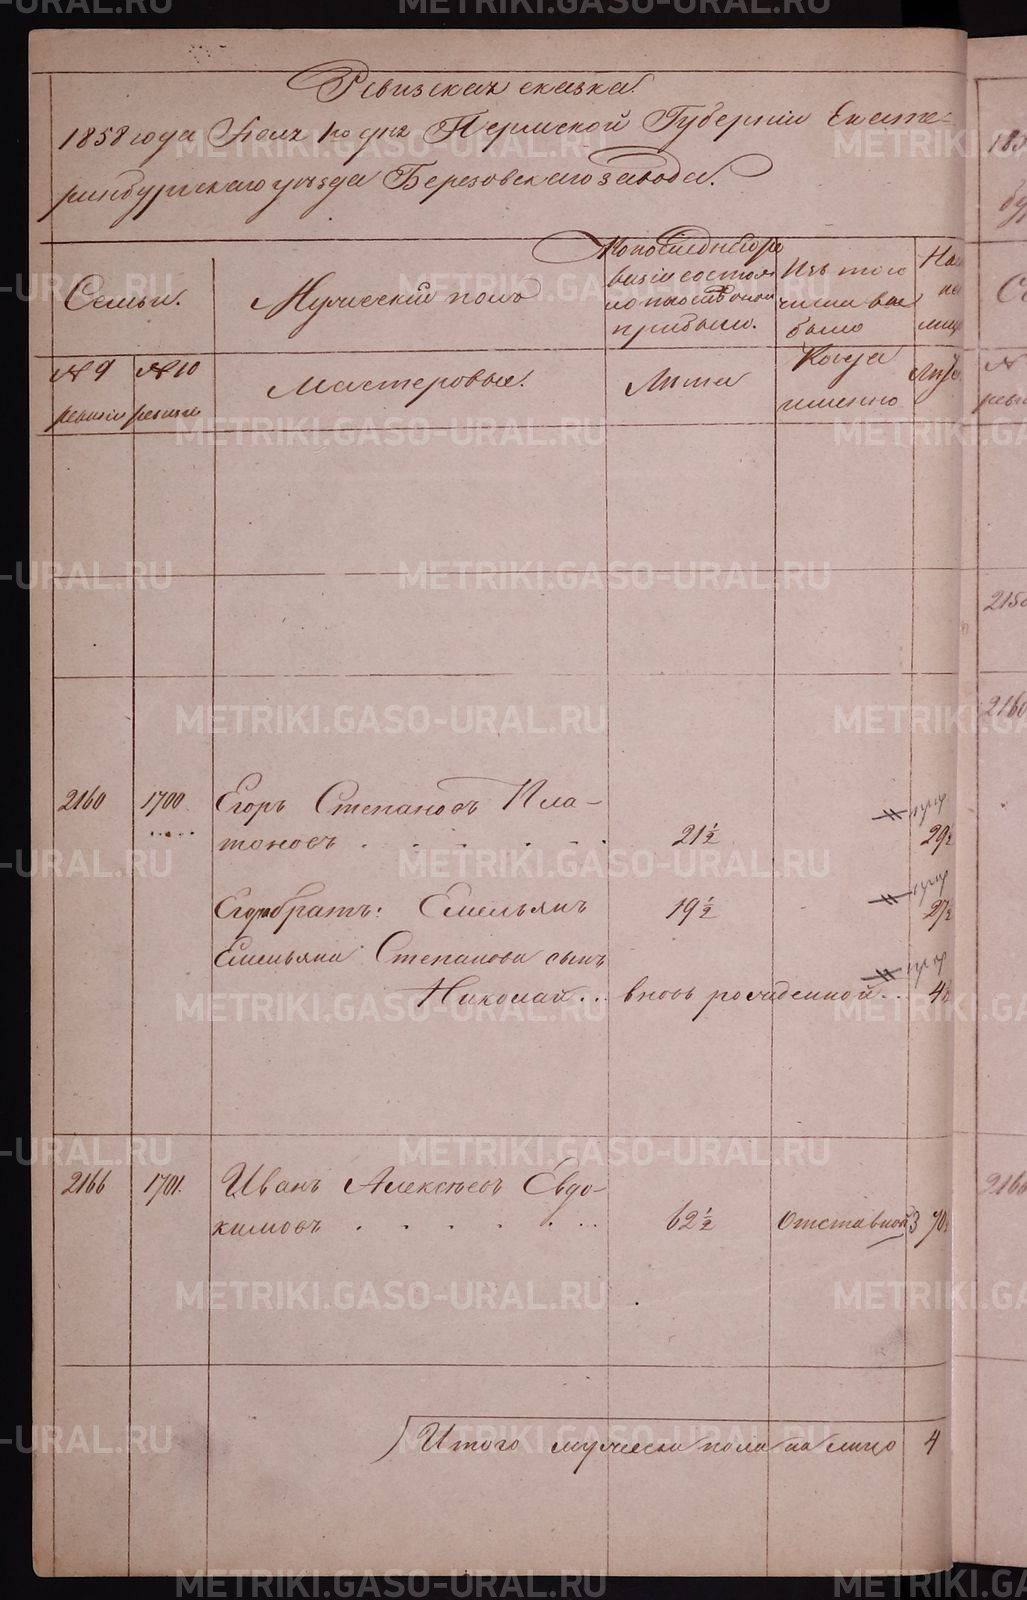 Ревизская сказка
1858 года Іюля 1го дня Пермской Губерніи Екате-
ринбургскаго уѣзда Березовскаго завода.
Семьи.
Мужескій полъ
По послѣдней ре
визіи состоя
ло и послѣ оной
прибыло.
Изъ того
числа вы
было
На
ли
№ 9
ревизіи
№ 10
ревизіи
Мастеровые.
Лѣта
Когда
именно
Лѣта
2160 1700 Егоръ Степановъ Пла-
тоновъ . . . . . . 21 ½ 29½
Егора братъ: Емельянъ 19 ½ 27½
Емельяна Степанова сынъ
Николай... вновь рожденной... 4½
2166 1701. Иванъ Алексѣевъ Евдо-
кимовъ . . . . . . . 62 ½ Отставной 3 70½
Итого мужеска пола на лицо 4
185
бу
Се
№
реви
2150
2160
2166
METRIKI.GASO-URAL.RU